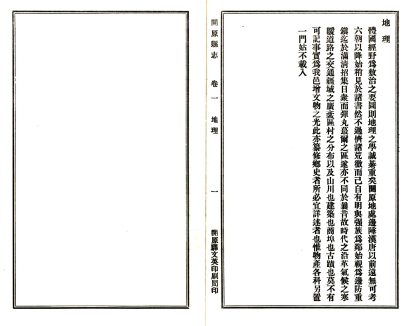 地理
體國經野爲敷治之要圖則地理之學誠綦重矣開原地處邊陲漢唐以前遠無可考
六朝以降始稍見於諸書然不過儕諸荒徼而已自有明與強族爲鄰始視爲邊防重
鎮迄於滿清招集日衆而彈丸蕞爾之區遂亦不同於曩昔故時代之沿革氣候之寒
暖道路之交通疆域之廣袤區村之分布以及山川也建築也商埠也古蹟也莫不有
可記事實爲我邑增文物之光此亦纂修鄉史者所必宜詳述者也惟物產各科另置
一門姑不載入
開原縣志
卷一
地理
一
開原縣文英印刷局印